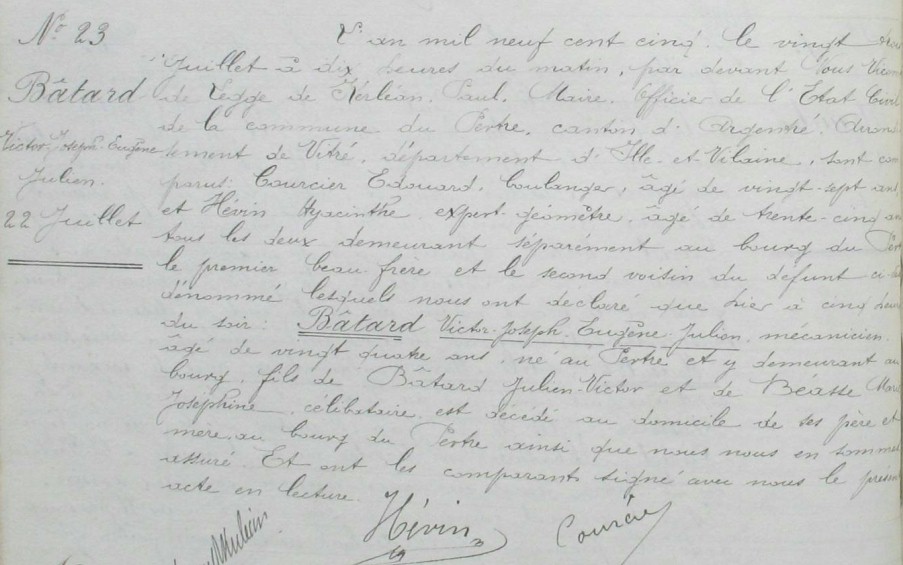 No 23
Bâtard
Victor-Joseph-Eugène
Julien.
22 Juillet
L'an mil neuf cent cinq, le vingt trois
Juillet à dix heures du matin, par devant Nous Vicomte
de Legge de Kerléan, Paul, Maire, Officier de l'Etat Civil
de la commune du Pertre, canton d'Argentré, Arrond
issement de Vitré, département d'Ille-et-Vilaine, sont com
parus: Courcier Edouard, boulanger, âgé de vingt-sept ans,
et Hévin Hyacinthe, expert-géomètre, âgé de trente-cinq ans
tous les deux demeurant séparément au bourg du Pertre
le premier beau-frère et le second voisin du défunt ci-
dénommé lesquels nous ont déclaré que hier à cinq heures
du soir: Bâtard Victor-Joseph-Eugène-Julien, mécanicien,
âgé de vingt quatre ans, né au Pertre et y demeurant au
bourg, fils de Bâtard Julien-Victor et de Béasse Marie
Joséphine, célibataire est décédé au domicile de ses père et
mère, au bourg du Pertre ainsi que nous nous en sommes
assuré. Et ont les comparants signé avec nous le présent
acte en lecture.
Hévin
Courcier